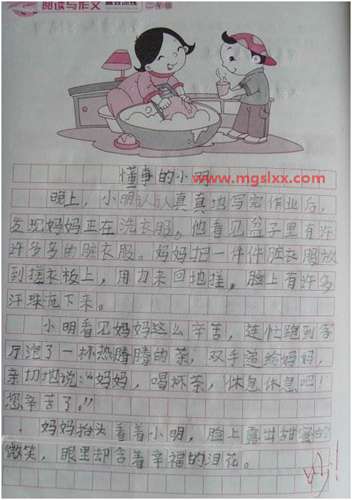 阅读与作文
二年级
懂事的小明
www.mgslxx.com
晚上，小明认认真真地写完作业后，
发现妈妈正在洗衣服。他看见盆子里有许
许多多的脏衣服。妈妈把一件件脏衣服放
到搓衣板上，用力来回地搓。脸上有许多
汗珠流下来。
小明看见妈妈这么辛苦，连忙跑到客
厅泡了一杯热腾腾的茶，双手递给妈妈，
亲切地说：“妈妈，喝杯茶，休息休息吧！
您辛苦了。”
妈妈抬头看着小明，脸上露出甜蜜的
微笑，眼里却含着幸福的泪花。